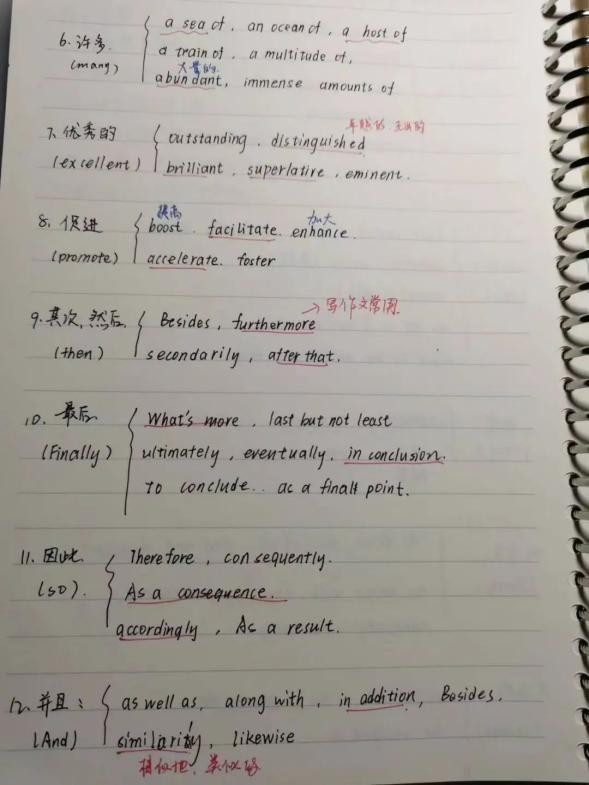 6. 许多. { a sea of, an ocean of, a host of
a train of, a multitude of,
(many) 大量的
abundant, immense amounts of
卓越的、杰出的
7. 优秀的 { outstanding, distinguished
(excellent) brilliant, superlative, eminent.
提高 加大
8. 促进 { boost. facilitate. enhance.
(promote) accelerate. foster
→写作文常用
9. 其次, 然后. { Besides, furthermore
(then) secondarily, after that.
10. 最后 { What's more, last but not least
(Finally) ultimately, eventually, in conclusion.
To conclude.. as a finall point.
11. 因此 { Therefore, consequently.
(so). As a consequence.
accordingly, As a result.
12. 并且: { as well as, along with, in addition, Besides,
(And) similarity, likewise
相似性、类似